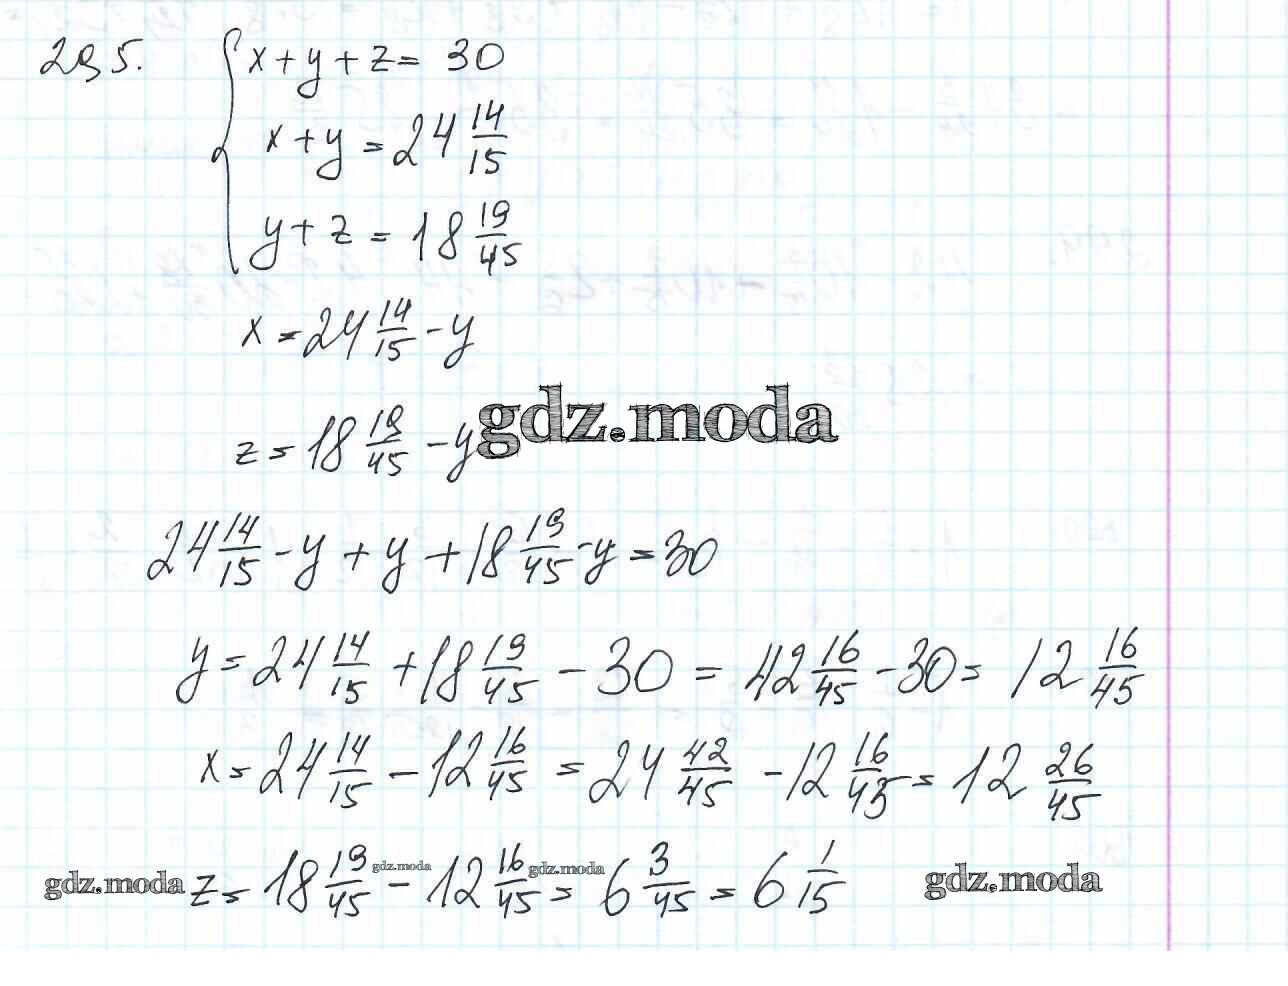 295. x + y + z = 30
x + y = 24 14/15
y + z = 18 19/45
x = 24 14/15 - y
z = 18 19/45 - y
gdz.moda
24 14/15 - y + y + 18 19/45 - y = 30
y = 24 14/15 + 18 19/45 - 30 = 42 16/45 - 30 = 12 16/45
x = 24 14/15 - 12 16/45 = 24 42/45 - 12 16/45 = 12 26/45
gdz.moda z = 18 19/45 gdz.moda - 12 16/45 gdz.moda = 6 3/45 = 6 1/15 gdz.moda